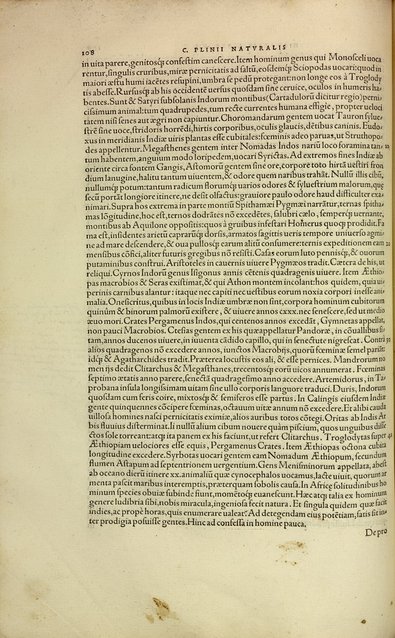 108 C. PLINII NATVRALIS
in uita parere, genitosq; confestim canescere. Item hominum genus qui Monosceli uoca
rentur, singulis cruribus, miræ pernicitatis ad saltū, eosdemq; Sciopodas uocari: quod in
maiori æstu humi iacētes resupini, umbra se pedū protegant: non longe eos à Troglody
tis abesse. Rursusq; ab his occidente uersus quosdam sine ceruice, oculos in humeris ha-
bentes. Sunt & Satyri subsolanis Indorum montibus (Cartadulorū dicitur regio) perni-
cissimum animal: tum quadrupedes, tum recte currentes humana effigie, propter ueloci
tatem nisi senes aut ægri non capiuntur. Choromandarum gentem uocat Tauron sylue-
strē sine uoce, stridoris horrēdi, hirtis corporibus, oculis glaucis, dētibus caninis. Eudo-
xus in meridianis Indiæ uiris plantas esse cubitales: fœminis adeo paruas, ut Struthopo-
des appellentur. Megasthenes gentem inter Nomadas Indos nariū loco foramina tan-
tum habentem, anguium modo loripedem, uocari Syrictas. Ad extremos fines Indiæ ab
oriente circa fontem Gangis, Astomorū gentem sine ore, corpore toto hirtā uestiri fron
dium lanugine, halitu tantum uiuentem, & odore quem naribus trahāt. Nullū illis cibū,
nullumq; potum: tantum radicum florumq; uarios odores & syluestrium malorum, quæ
secū portāt longiore itinere, ne desit olfactus: grauiore paulo odore haud difficulter exa-
nimari. Supra hos extrema in parte montium Spithamæi Pygmæi narrātur, ternas spitha
mas lōgitudine, hoc est, ternos dodrātes nō excedētes, salubri cælo, semperq; uernante,
montibus ab Aquilone oppositis: quos à gruibus infestari Homerus quoq; prodidit. Fa
ma est, insidentes arietū caprarūq; dorsis, armatos sagittis ueris tempore uniuerso agmi-
ne ad mare descendere, & oua pullosq; earum alitū consumere: ternis expeditionem eam
mensibus cōfici, aliter futuris gregibus nō resisti. Casas eorum luto pennisq;, & ouorum
putaminibus construi. Aristoteles in cauernis uiuere Pygmæos tradit. Cætera de his, ut
reliqui. Cyrnos Indorū genus Isigonus annis cētenis quadragenis uiuere. Item Æthio-
pas macrobios & Seras existimat, & qui Athon montem incolant: hos quidem, quia ui-
perinis carnibus alantur: itaque nec capiti nec uestibus eorum noxia corpori inesse ani-
malia. Onesicritus, quibus in locis Indiæ umbræ non sint, corpora hominum cubitorum
quinûm & binorum palmorū existere, & uiuere annos cxxx. nec senescere, sed ut medio
æuo mori. Crates Pergamenus Indos, qui centenos annos excedāt, Gymnetas appellat,
non pauci Macrobios. Ctesias gentem ex his quæ appellatur Pandoræ, in cōuallibus si-
tam, annos ducenos uiuere, in iuuenta cādido capillo, qui in senectute nigrescat. Contrà
alios quadragenos nō excedere annos, iunctos Macrobijs, quorū fœminæ semel pariāt:
idq; & Agatharchides tradit. Præterea locustis eos ali, & esse pernices. Mandrorum no
men ijs dedit Clitarchus & Megasthenes, trecentosq; eorū uicos annumerat. Fœminas
septimo ætatis anno parere, senectā quadragesimo anno accedere. Artemidorus, in Ta-
probana insula longissimam uitam sine ullo corporis languore traduci. Duris, Indorum
quosdam cum feris coire, mixtosq; & semiferos esse partus. In Calingis eiusdem Indiæ
gente quinquennes cōcipere fœminas, octauum uitæ annum nō excedere. Et alibi cauda
uillosa homines nasci pernicitatis eximiæ, alios auribus totos cōtegi. Oritas ab Indis Ar
bis fluuius disterminat. Ii nullū alium cibum nouere quàm piscium, quos unguibus disse
ctos sole torreant: atq; ita panem ex his faciunt, ut refert Clitarchus. Troglodytas super
Æthiopiam uelociores esse equis, Pergamenus Crates. Item Æthiopas octona cubita
longitudine excedere. Syrbotas uocari gentem eam Nomadum Æthiopum, secundum
flumen Astapum ad septentrionem uergentium. Gens Menisminorum appellata, abest
ab oceano dierū itinere xx. animaliū quæ cynocephalos uocamus, lacte uiuit, quorum ar
menta pascit maribus interemptis, præterquam sobolis causa. In Africæ solitudinibus ho
minum species obuiæ subinde fiunt, momētoq; euanescunt. Hæc atq; talia ex hominum
genere ludibria sibi, nobis miracula, ingeniosa fecit natura. Et singula quidem quæ facit
indies, ac propè horas, quis enumerare ualeat? Ad detegendam eius potētiam, satis sit in-
ter prodigia posuisse gentes. Hinc ad confessa in homine pauca.
De pro